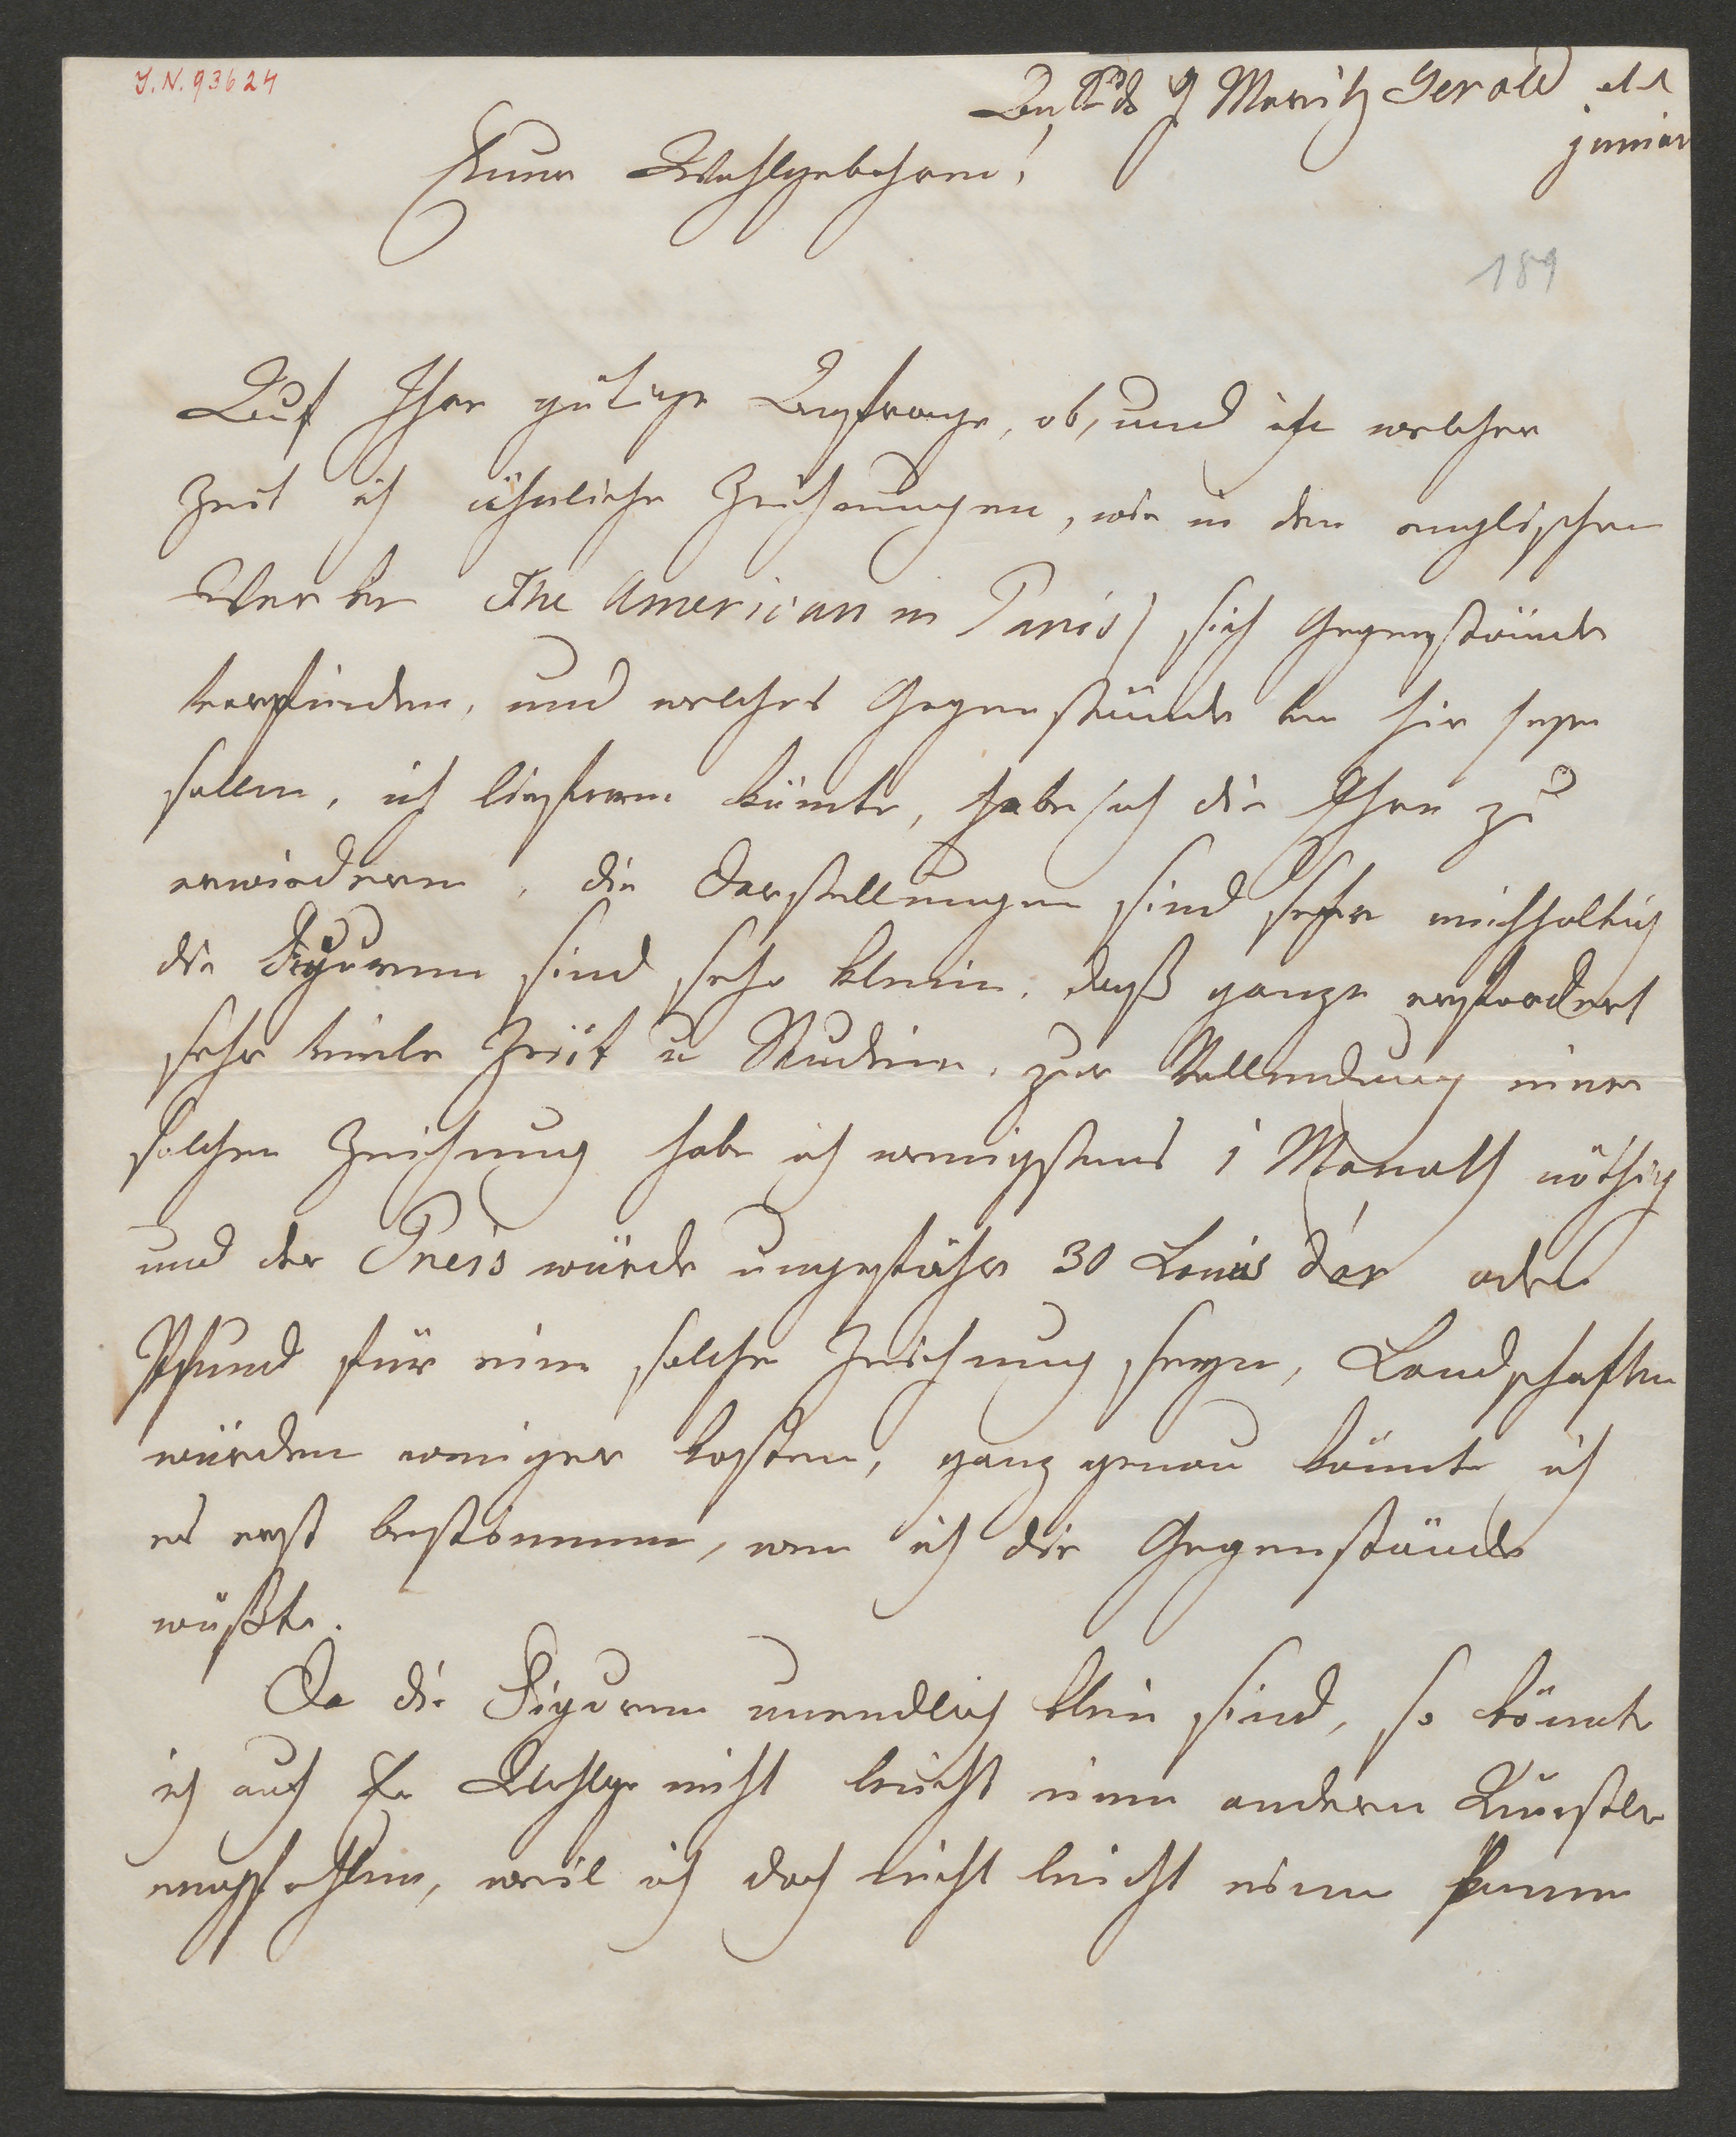 I.N. 93624
Moritz Gerold
junior
Euer Wohlgebohren!
189
Auf Ihre gütige Anfrage, ob, und in welcher
Zeit ich ähnliche Zeichnungen, wie in den englischen
Werken The American in Paris) sich Gegenstände
vorfinden, und welches Gegenstände von hir seyn
sollen, ich liefern könnte, habe ich die Ehre zu
erwiedern, die Darstellungen sind sehr reichhaltig
die Figuren sind sehr klein. daß ganze erfordert
sehr viele Zeit u Studien. zur Vollendung einer
solchen Zeichnung habe ich wenigstens 1 Monath nöthig
und der Preis würde ungefähr 30 Louis dór oder
Pfund für eine solche Zeichnung seyn, Landschaften
würden weniger kosten, ganz genau könnte ich
es erst bestimmen, wen ich die Gegenstände
wüßte.
Da die Figuren unendlich klein sind, so könnte
ich auch Er Wohlge nicht leicht einen andern Künstler
empfehlen, weil ich doch nicht leicht einen kenne